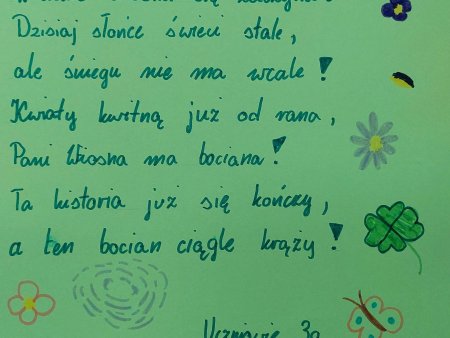 Dzisiaj słońce świeci stale,
ale śniegu nie ma wcale!
Kwiaty kwitną już od rana,
Pani Wiosna ma bociana!
Ta historia już się kończy,
a ten bocian ciągle krąży!
Uczniowie 3a